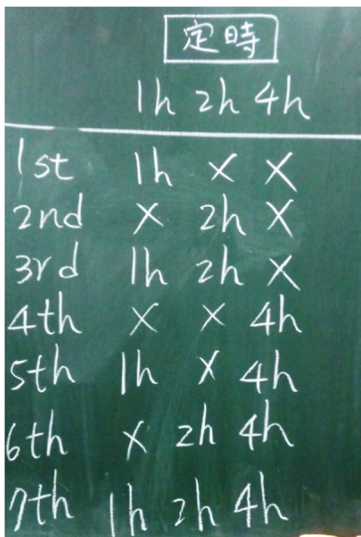 定時
1h 2h 4h
1st 1h × ×
2nd × 2h ×
3rd 1h 2h ×
4th × × 4h
5th 1h × 4h
6th × 2h 4h
7th 1h 2h 4h